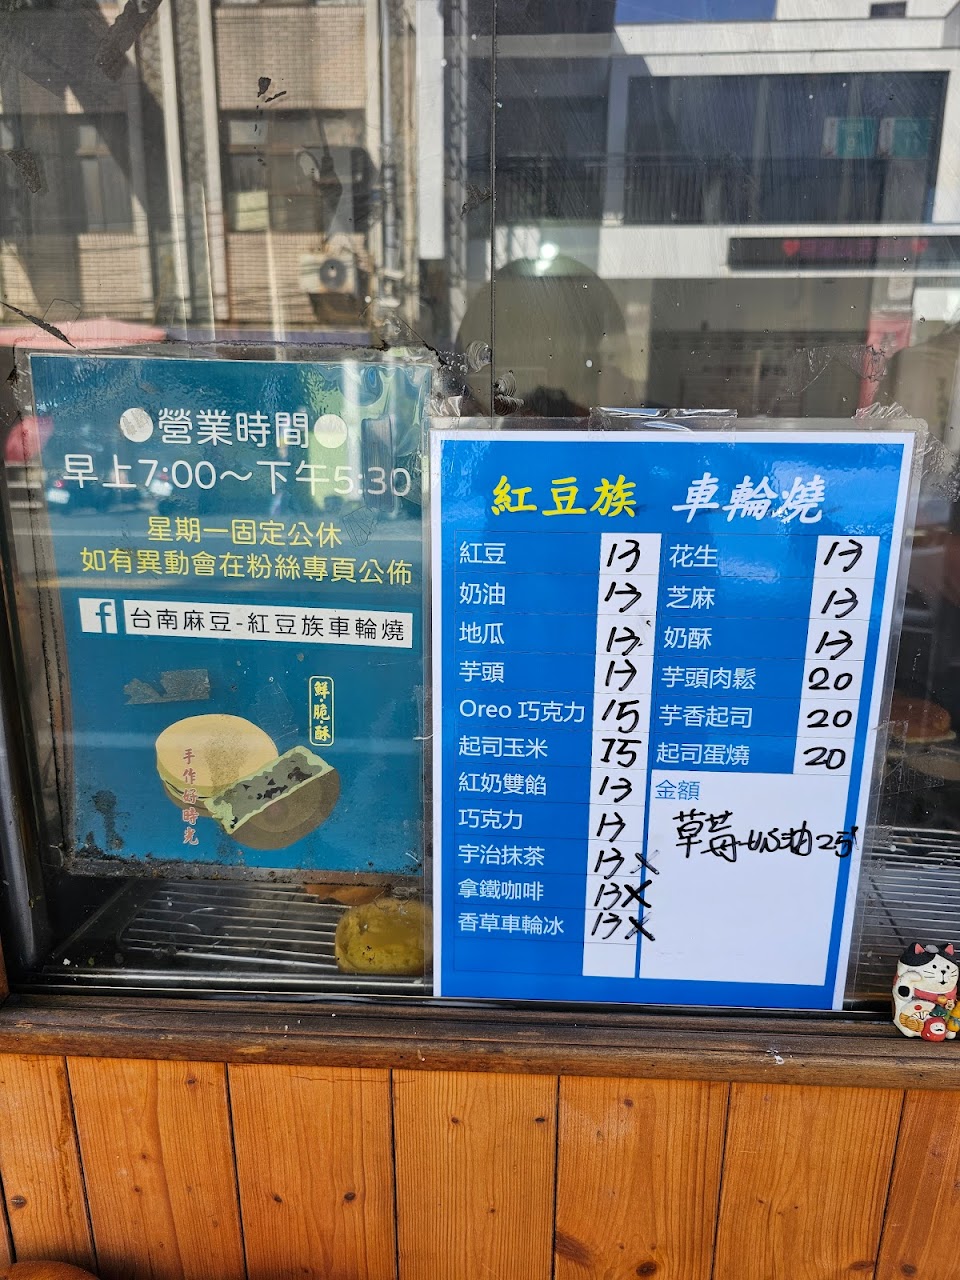 ●營業時間●
早上7:00～下午5:30
星期一固定公休
如有異動會在粉絲專頁公佈
f 台南麻豆-紅豆族車輪燒
鮮·脆·酥
手作好時光
紅豆族 車輪燒
紅豆 13
奶油 13
地瓜 13
芋頭 13
Oreo 巧克力 15
起司玉米 15
紅奶雙餡 13
巧克力 13
宇治抹茶 13 X
拿鐵咖啡 13 X
香草車輪冰 13 X
花生 13
芝麻 13
奶酥 13
芋頭肉鬆 20
芋香起司 20
起司蛋燒 20
金額
草莓奶油